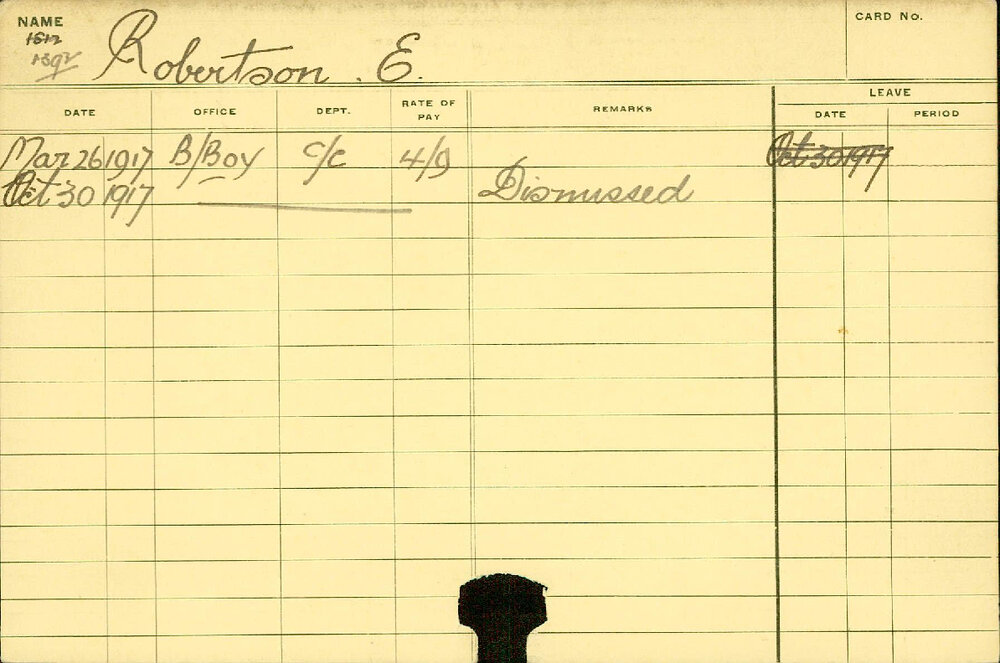 NAME
CARD No.
Robertson . E.
DATE OFFICE DEPT. RATE OF PAY REMARKS LEAVE
DATE PERIOD
Mar 26 1917 B/Boy C/C 4/9 Oct 30 1917
Oct 30 1917 Dismissed